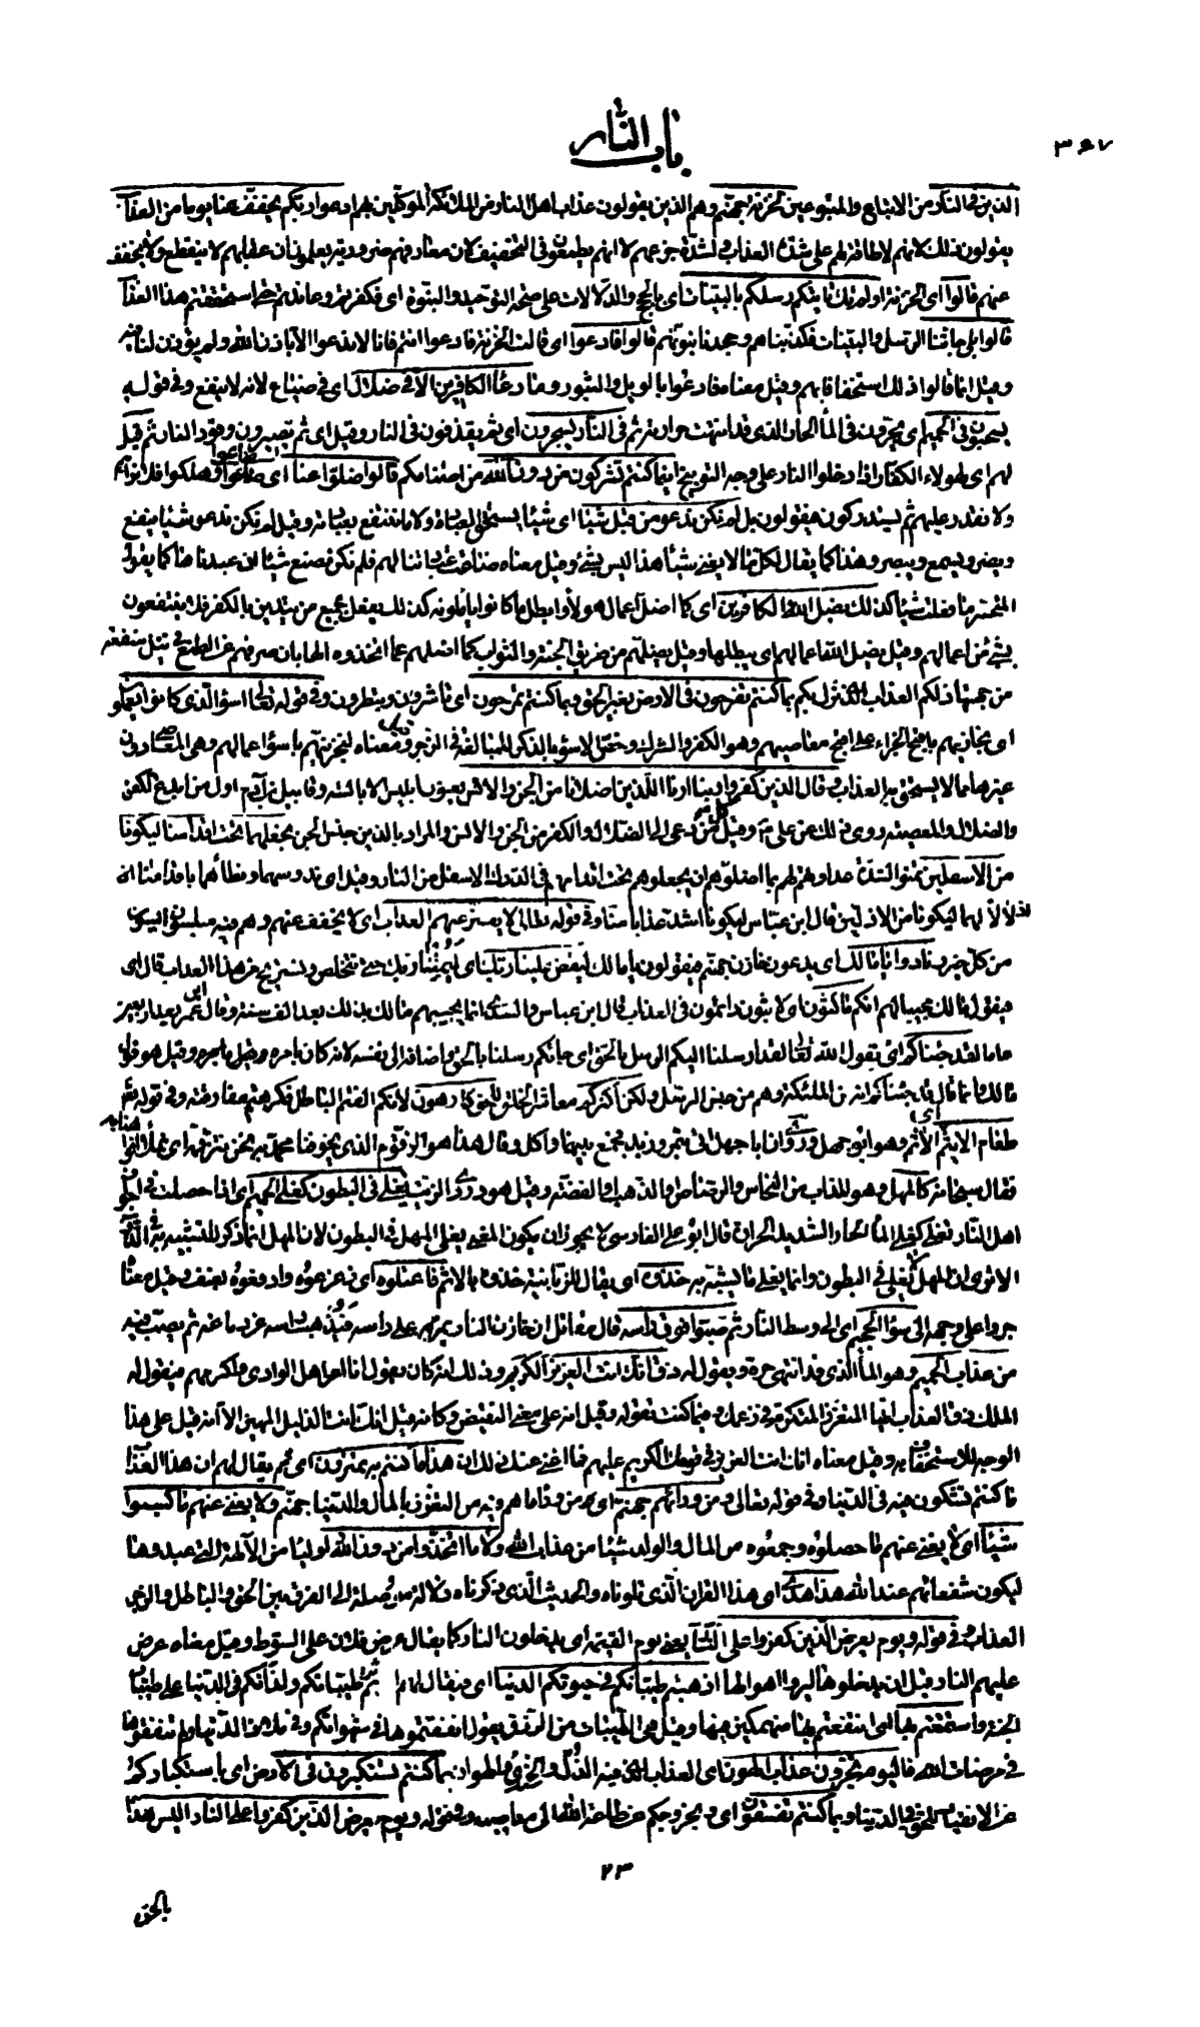 باب النار
٣٦٧
الذين في النار من الاتباع والمتبوعين لخزنة جهنم وهم الذين يتولون عذاب اهل النار من الملئكة الموكلين بهم ادعوا ربكم يخفف عنا يوما من العذاب
يقولون ذلك لانهم لا طاقة لهم على شدة العذاب ولشدة جزعهم لا انهم يطمعون في التخفيف لان معارفهم ضرورية يعلمون ان عقابهم لا ينقطع ولا يخفف
عنهم قالوا اى الخزنة اولم تك تاتيكم رسلكم بالبينات اى بالحجج والدلالات على صحة التوحيد والنبوة اى فكفرتم وعاندتم حتى استحققتم هذا العذاب
قالوا بلى جاءتنا الرسل والبينات فكذبناهم وجحدنا نبوتهم قالوا فادعوا اى قالت الخزنة فادعوا انتم فانا لا ندعوا الا باذن الله ولم يؤذن لنا فيه
وقيل انما قالوا ذلك استخفافا بهم وقيل معناه فادعوا بالويل والثبور وما دعاء الكافرين الا في ضلال اى في ضياع لانه لا ينفع وفي قوله
يسحبون في الحميم اى يجرون في الماء الحار الذى قد انتهت حرارته ثم في النار يسجرون اى ثم يقذفون في النار وقيل اى ثم يصيرون وقود النار ثم قيل
لهم اى لهؤلاء الكفار اذا دخلوا النار على وجه التوبيخ اينما كنتم تشركون من دون الله من اصنامكم قالوا ضلوا عنا اى ضاعوا وهلكوا فلا نراهم
ولا نقدر عليهم ثم يستدركون فيقولون بل لم نكن ندعو من قبل شيئا اى شيئا يستحق العبادة ولا ما ننتفع بعبادته وقيل لم نكن ندعو شيئا ينفع
ويضر ويسمع ويبصر وهذا كما يقال لكل ما لا يغنى شيئا هذا ليس بشئ وقيل معناه ضاعت عباداتنا لهم فلم نكن نصنع شيئا اذ عبدناها كما يقول
المتحسر ما فعلت شيئا كذلك يضل الله الكافرين اى كما اضل اعمال هؤلاء وابطل ما كانوا ياملونه كذلك يفعل بجميع من يتدين بالكفر فلا ينتفعون
بشئ من اعمالهم وقيل يضل الله اعمالهم اى يبطلها وقيل يضلهم عن طريق الجنة والثواب كما اضلهم عما اتخذوه الها بان صرفهم عن الطمع في نيل منفعة
من جهتها ذلكم العذاب الذى نزل بكم بما كنتم تفرحون في الارض بغير الحق وبما كنتم تمرحون اى تأشرون وتبطرون وفي قوله تعالى اسوأ الذى كانوا يعملون
اى نجازيهم باقبح الجزاء على اقبح معاصيهم وهو الكفر والشرك وخص الاسوء بالذكر للمبالغة في الزجر وقيل معناه لنجزينهم باسوأ اعمالهم وهى المعاصى دون
غيرها مما لا يستحق به العذاب وقال الذين كفروا ربنا ارنا اللذين اضلانا من الجن والانس يعنون ابليس الابالسة وقابيل بن آدم اول من ابدع الكفر
والضلال والمعصية روى ذلك عن على ع وقيل كل من دعى الى الضلال والكفر من الجن والانس والمراد بالذين جنس الجن نجعلهما تحت اقدامنا ليكونا
من الاسفلين تمنوا لشدة عداوتهم لهم بما اضلوهم ان يجعلوهم تحت اقدامهم في الدرك الاسفل من النار وقيل اى ندوسهما ونطأهما باقدامنا
اذلالا لهما ليكونا من الاذلين قال ابن عباس ليكونا اشد عذابا منا وفي قوله تعالى لا يفتر عنهم العذاب اى لا يخفف عنهم وهم فيه مبلسون آيسون
من كل خير ونادوا يا مالك اى يدعون خازن جهنم فيقولون يا مالك ليقض علينا ربك اى ليمتنا ربك حتى نتخلص ونستريح من هذا العذاب قال اى
فيقول مالك مجيبا لهم انكم ماكثون اى لابثون دائمون في العذاب قال ابن عباس والسدى انما يجيبهم مالك بذلك بعد الف سنة وقال ابن عمر بعد اربعين
عاما لقد جئناكم اى يقول الله تعالى لقد ارسلنا اليكم الرسل بالحق اى جاءكم رسلنا بالحق واضافه الى نفسه لانه كان بامره وقيل هو قول
مالك وانما قال جئناكم لانه من الملئكة وهم من جنس الرسل ولكن اكثركم معاشر الخلق للحق كارهون لانكم الفتم الباطل فكرهتم مفارقته وفي قوله تعالى
طعام الاثيم اى الآثم وهو ابو جهل وروى ان ابا جهل اتى بتمر وزبد فجمع بينهما واكل وقال هذا هو الزقوم الذى يخوفنا محمد به نحن نتزقمه اى نملأ افواهنا به
فقال سبحانه كالمهل وهو المذاب من النحاس والرصاص والذهب والفضة وقيل هو دردى الزيت يغلى في البطون كغلى الحميم اى اذا حصلت في اجواف
اهل النار تغلى كغلى الماء الحار الشديد الحرارة قال ابو على الفارسى لا يجوز ان يكون المعنى يغلى المهل في البطون لان المهل انما ذكر للتشبيه به في الذوب
الا ترى ان المهل لا يغلى في البطون وانما يغلى ما شبه به خذوه اى يقال للزبانية خذوا الاثيم فاعتلوه اى زعزعوه وادفعوه بعنف وقيل معناه
جروا على وجهه الى سواء الجحيم اى الى وسط النار ثم صبوا فوق رأسه قال مقاتل ان خازن النار يمر به على رأسه فيذهب رأسه عن دماغه ثم يصب فيه
من عذاب الحميم وهو الماء الذى قد انتهى حره ويقول له ذق انك انت العزيز الكريم وذلك انه كان يقول انا اعز اهل الوادى واكرمهم فيقول له
الملك ذق العذاب ايها المتعزز المتكرم في زعمك وفيما كنت تقوله وقيل انه على معنى النقيض وكانه قيل انك انت الذليل المهين الا انه قيل على هذا
الوجه للاستخفاف به وقيل معناه انك انت العزيز في قومك الكريم عليهم فما اغنى عنك ذلك ان هذا ما كنتم به تمترون اى ثم يقال لهم ان هذا العذاب
ما كنتم تشكون فيه في الدنيا وفي قوله تعالى ومن ورائهم جهنم اى من وراء ما هم فيه من التعزز بالمال والدنيا جهنم ولا يغنى عنهم ما كسبوا
شيئا اى لا يغنى عنهم ما حصلوه وجمعوه من المال والولد شيئا من عذاب الله ولا ما اتخذوا من دون الله اولياء من الآلهة التى عبدوها
ليكون شفعائهم عند الله هذا هدى اى هذا القران الذى تلوناه والحديث الذى ذكرناه دلالة موصلة الى الفرق بين الحق والباطل والزجر
العذاب وفي قوله ويوم يعرض الذين كفروا على النار يعنى يوم القيمة اى يدخلون النار كما يقال عرض فلان على السوط وقيل معناه عرض
عليهم النار قبل ان يدخلوها ليروا اهوالها اذهبتم طيباتكم في حيوتكم الدنيا اى فيقال لهم اثرتم طيباتكم ولذاتكم في الدنيا على طيبات
الجنة واستمتعتم بها اى انتفعتم بها منهمكين فيها وقيل هى الطيبات من الرزق يقول انفقتموها في شهواتكم وفي ملاذ الدنيا ولم تنفقوها
في مرضات الله فاليوم تجزون عذاب الهون اى العذاب الذى فيه الذل والخزى والهوان بما كنتم تستكبرون في الارض اى باستكباركم
عن الانقياد للحق في الدنيا وبما كنتم تفسقون اى بخروجكم عن طاعة الله الى معاصيه وفي قوله ويوم يعرض الذين كفروا على النار اليس هذا
٢٣
بالحق